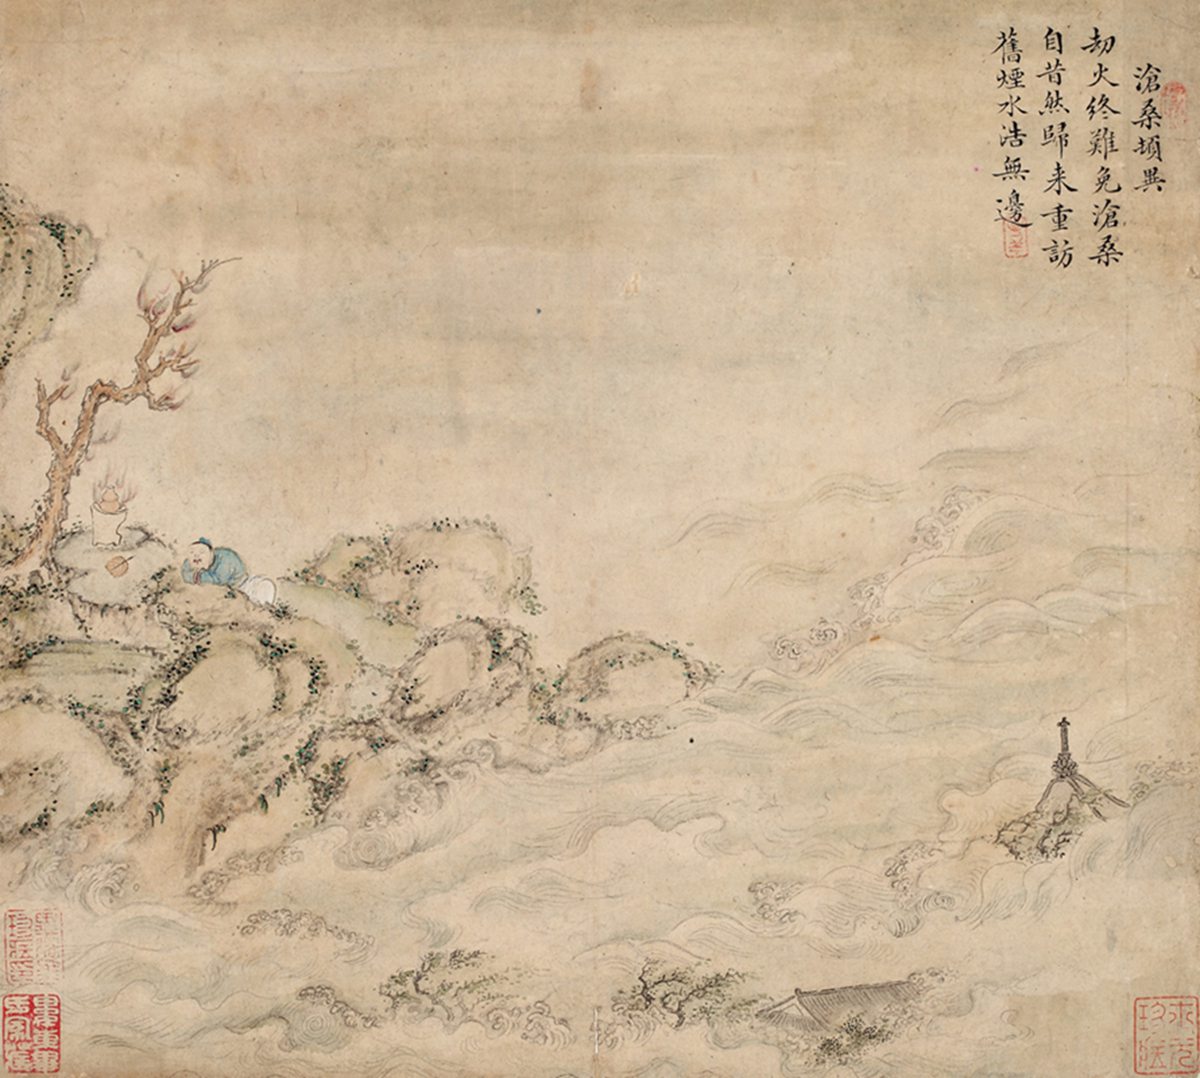 滄桑頓異
劫火終難免滄桑
自昔然歸来重訪
舊煙水浩無邊